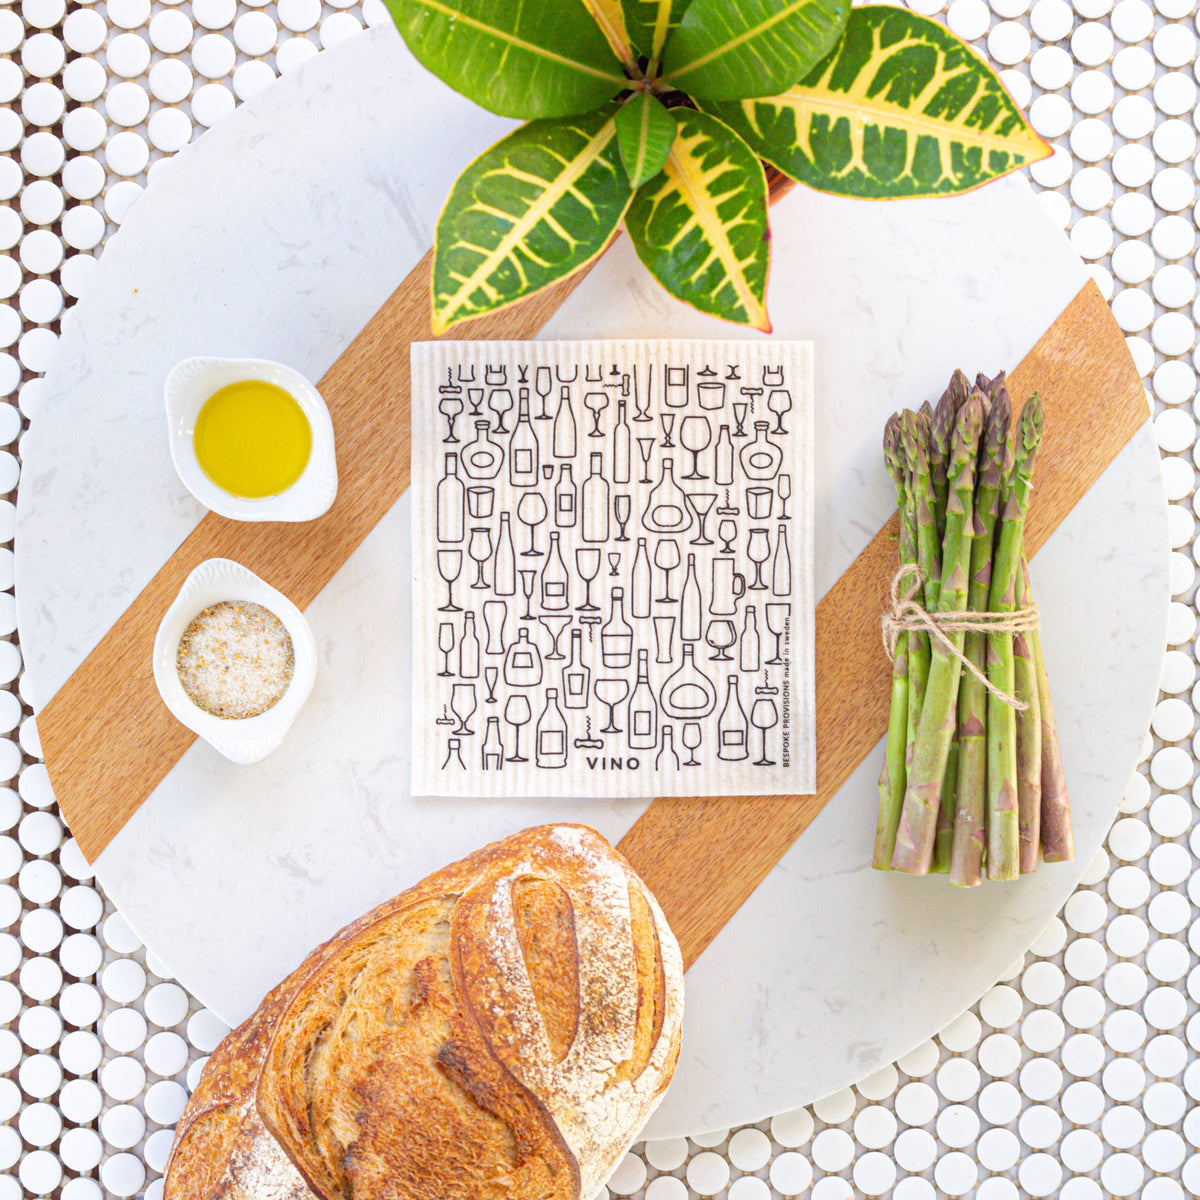 VINO
BESPOKE PROVISIONS made in sweden